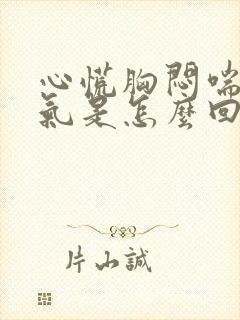 心慌胸悶喘
氣是怎麼回
片山誠